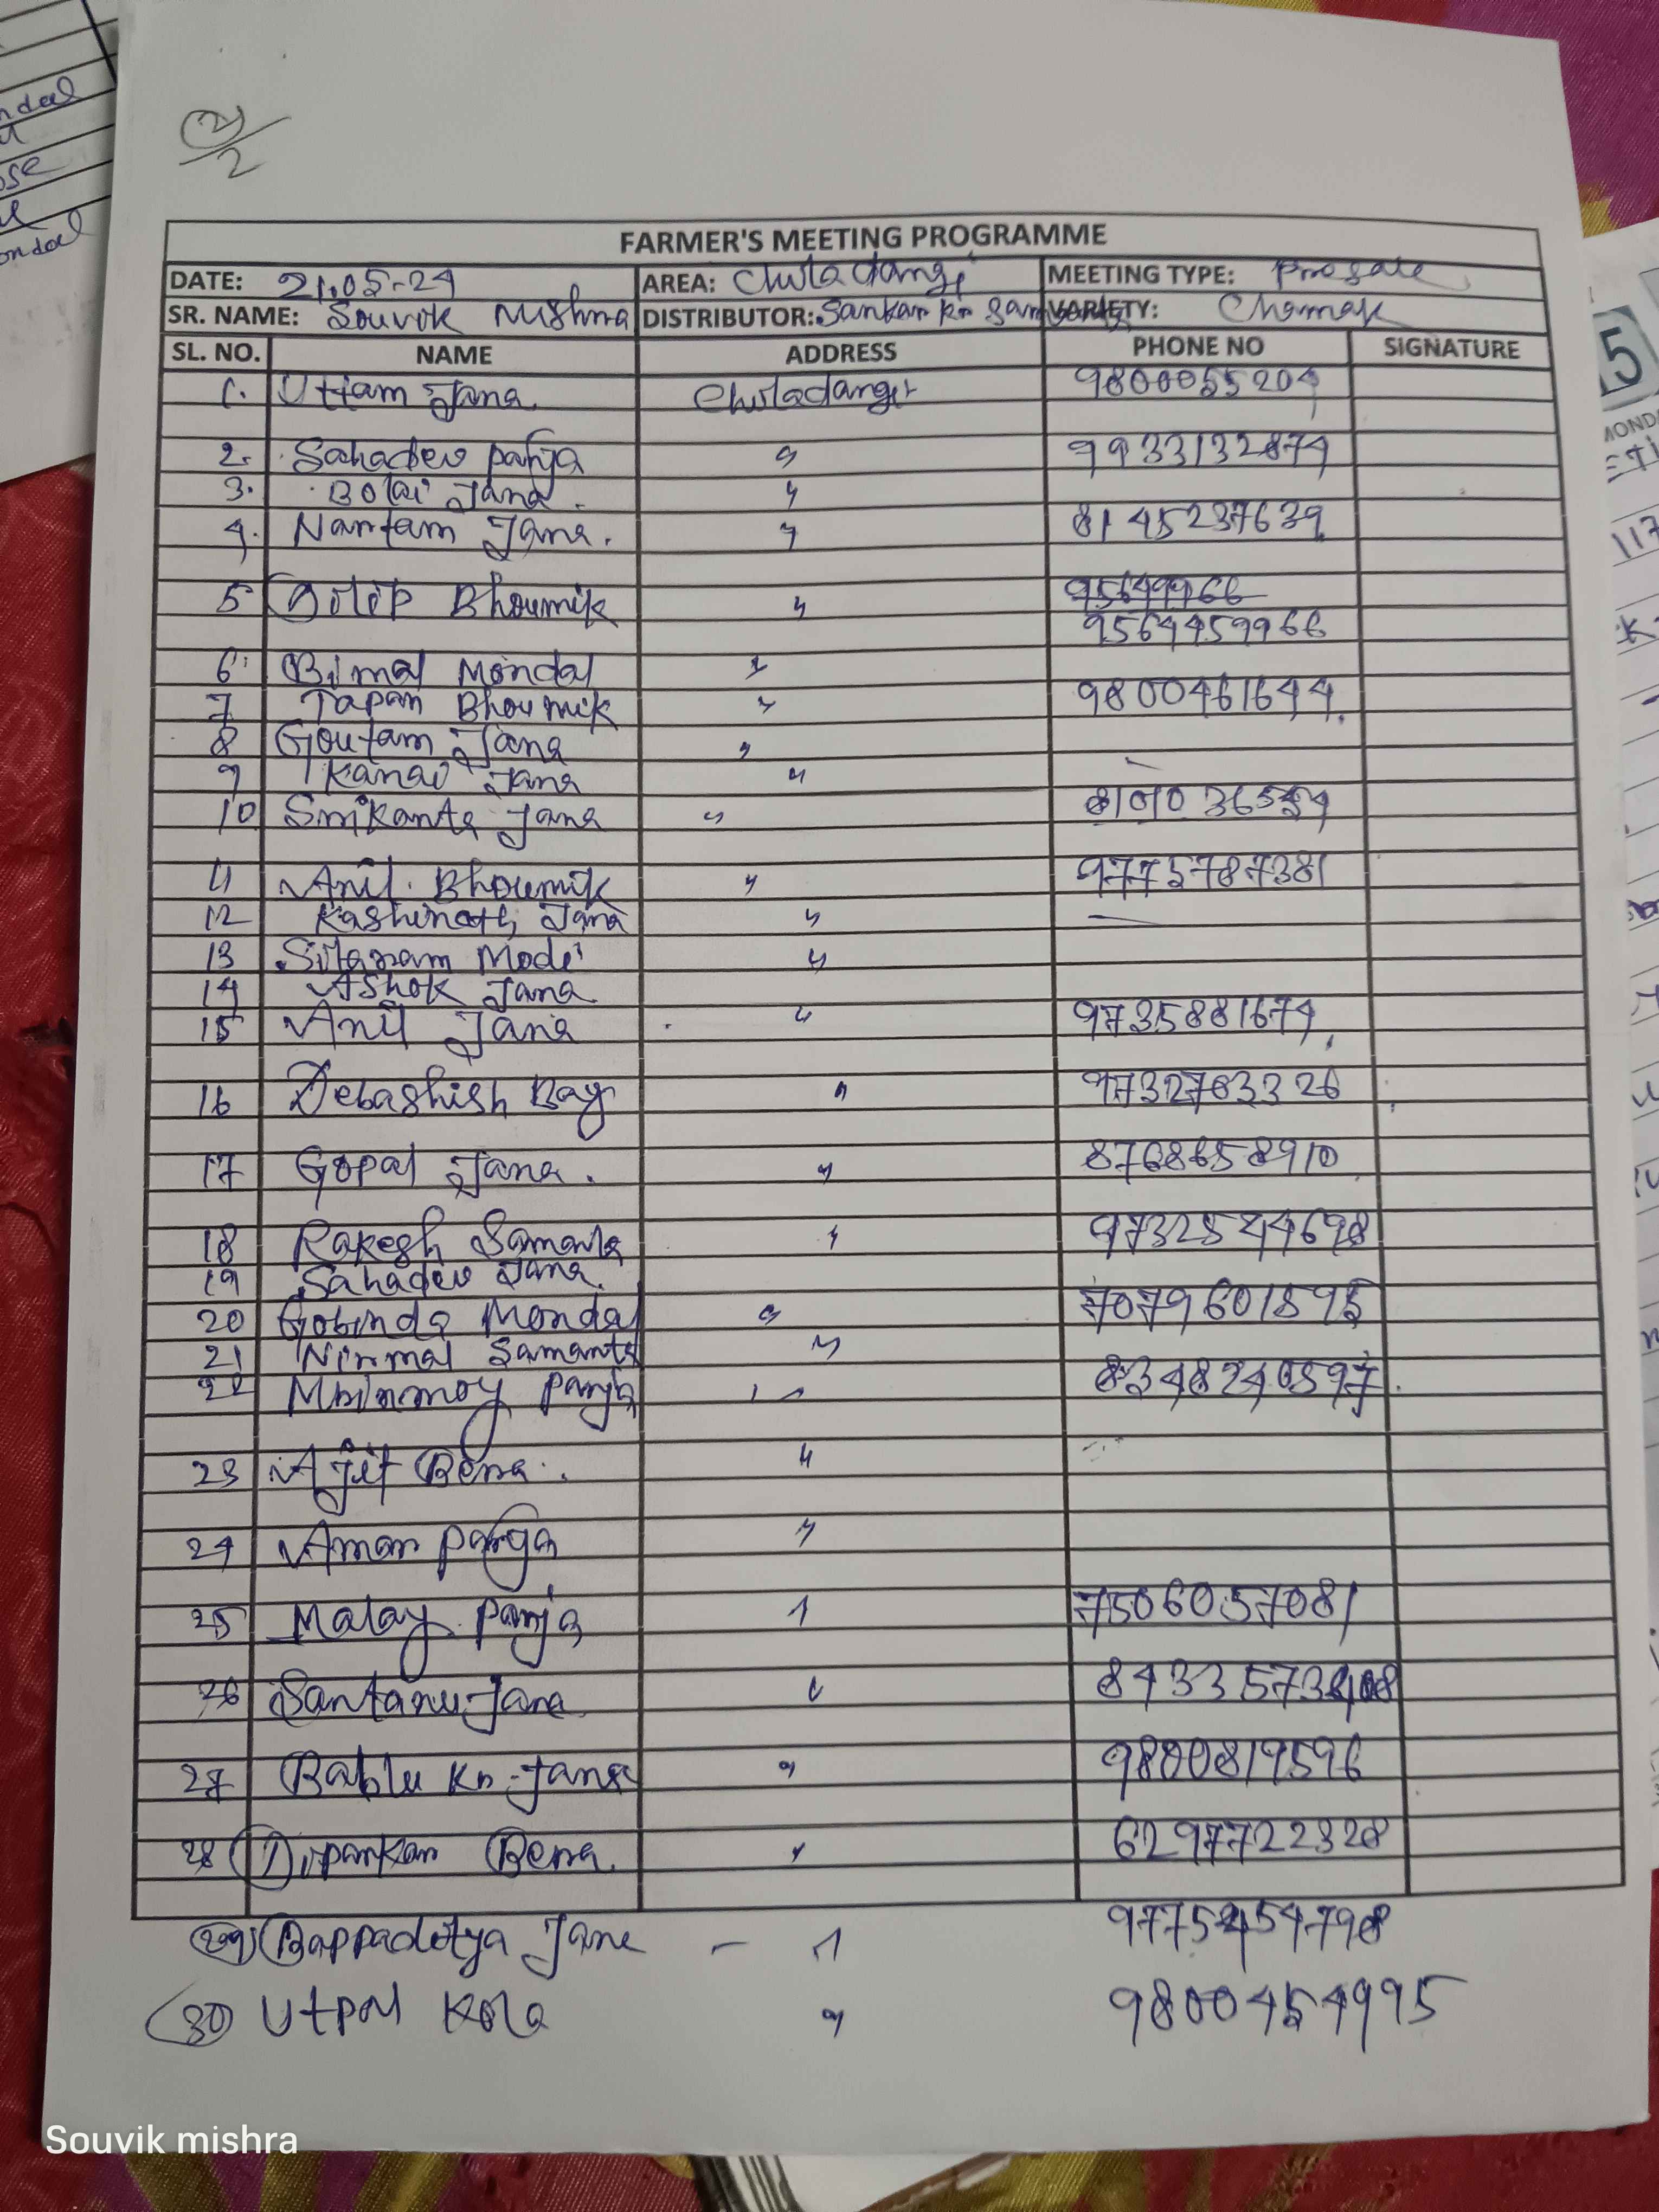 2
FARMER'S MEETING PROGRAMME
DATE: 21.05-24 AREA: Chuladangi MEETING TYPE: Presale
SR. NAME: Souvik Mishra DISTRIBUTOR: Sankar Kr VARIETY: Chamak
SL. NO. NAME ADDRESS PHONE NO SIGNATURE
1. Uttam Jana Chuladangi 9800055204
2. Sahadev Panja " 9933132874
3. Bolai Jana "
4. Nantam Jana. " 8145237639
5 Dilip Bhoumik " 95649966
9564459966
6 Bimal Mondal "
7 Tapan Bhoumik " 9800461644
8 Goutam Jana "
9 Kanai Jana "
10 Srikanta Jana "
11 Anil Bhoumik " 9775787381
12 Kashinath Jana "
13 Sitaram Modi "
14 Ashok Jana
15 Anil Jana " 9735881674
16 Debashish Ray " 9732763326
17 Gopal Jana. " 8768658910
18 Rakesh Samanta " 9732544698
19 Sahadev Jana.
20 Gobinda Mondal " 7079601895
21 Nirmal Samanta "
22 Mrinmoy Panja " 8348240597
23 Ajit Bera. "
24 Amar Panja "
25 Malay Panja " 7506057081
26 Santanu Jana "
27 Bablu Kr. Jana " 9800819596
28 Dipankar Bera. " 6297722328
29 Bappaditya Jana - "
30 Utpal Kola " 9800454995
Souvik mishra